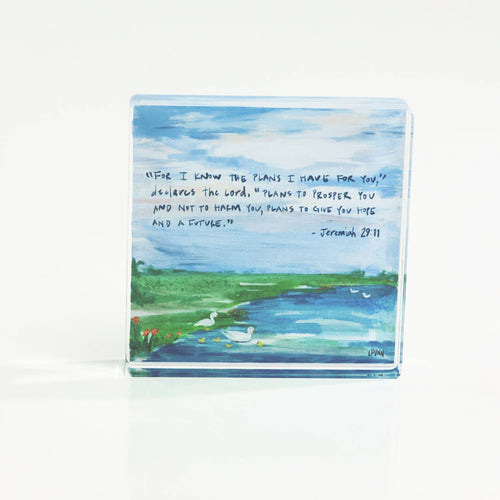 "FOR I KNOW THE PLANS I HAVE FOR YOU,"
declares the Lord, "PLANS TO PROSPER YOU
AND NOT TO HARM YOU, PLANS TO GIVE YOU HOPE
AND A FUTURE."
- Jeremiah 29:11